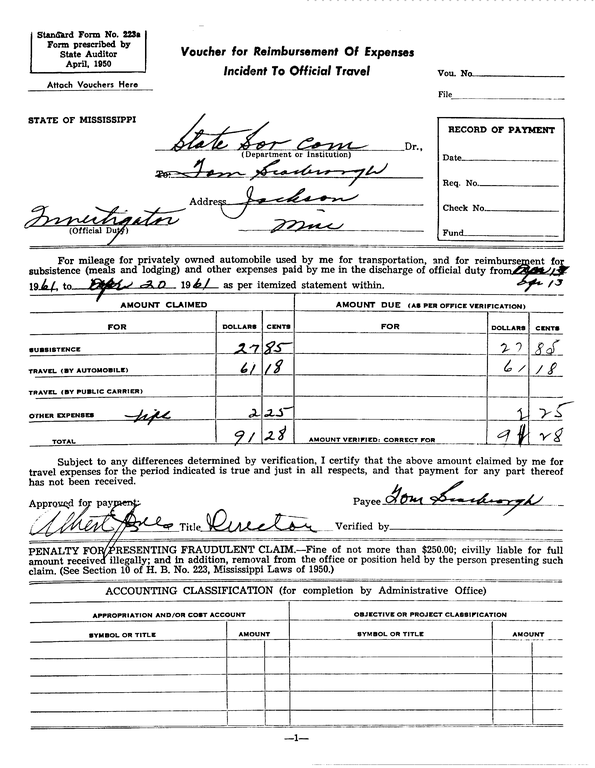 Standard Form No. 223a
Form prescribed by
State Auditor
April, 1950
Attach Vouchers Here
Voucher for Reimbursement Of Expenses
Incident To Official Travel
Vou. No.
File
STATE OF MISSISSIPPI
RECORD OF PAYMENT
Date
Req. No.
Check No.
Fund
State Sov Com Dr.,
(Department or Institution)
To: Tom Scarbrough
Address Jackson
Miss
Investigator
(Official Duty)
For mileage for privately owned automobile used by me for transportation, and for reimbursement for
subsistence (meals and lodging) and other expenses paid by me in the discharge of official duty from Apr 13
1961, to Apr 20 1961 as per itemized statement within.
AMOUNT CLAIMED AMOUNT DUE (AS PER OFFICE VERIFICATION)
FOR DOLLARS CENTS FOR DOLLARS CENTS
SUBSISTENCE 27 85 27 85
TRAVEL (BY AUTOMOBILE) 61 18 61 18
TRAVEL (BY PUBLIC CARRIER)
OTHER EXPENSES tips 2 25 2 25
TOTAL 91 28 AMOUNT VERIFIED: CORRECT FOR 91 28
Subject to any differences determined by verification, I certify that the above amount claimed by me for
travel expenses for the period indicated is true and just in all respects, and that payment for any part thereof
has not been received.
Approved for payment: Payee Tom Scarbrough
Albert Jones Title Director Verified by
PENALTY FOR PRESENTING FRAUDULENT CLAIM.—Fine of not more than $250.00; civilly liable for full
amount received illegally; and in addition, removal from the office or position held by the person presenting such
claim. (See Section 10 of H. B. No. 223, Mississippi Laws of 1950.)
ACCOUNTING CLASSIFICATION (for completion by Administrative Office)
APPROPRIATION AND/OR COST ACCOUNT OBJECTIVE OR PROJECT CLASSIFICATION
SYMBOL OR TITLE AMOUNT SYMBOL OR TITLE AMOUNT
—1—